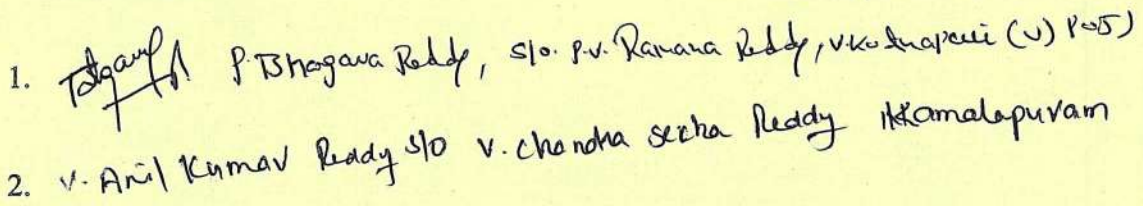 1. P. Bhargava Reddy, S/o. P.V. Ramana Reddy, V.Kothapalli (V) Post)
2. V. Anil Kumar Reddy S/o V. Chandra Sekha Reddy Kamalapuram